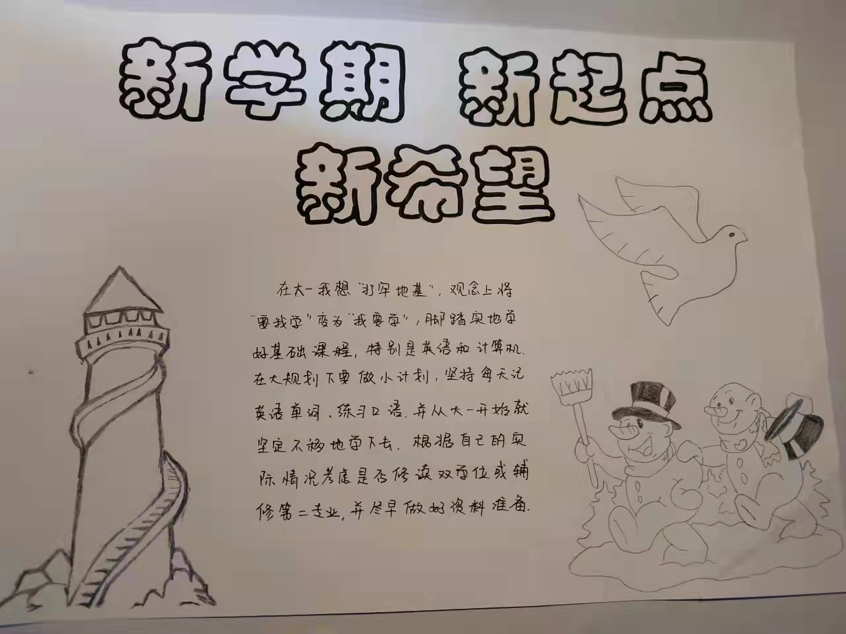 新学期 新起点
新希望
在大一我想“打牢地基”，观念上将
“要我学”变为“我要学”，脚踏实地学
好基础课程，特别是英语和计算机.
在大规划下要做小计划，坚持每天记
英语单词、练习口语.并从大一开始就
坚定不移地学下去.根据自己的实
际情况考虑是否修读双学位或辅
修第二专业,并尽早做好资料准备.